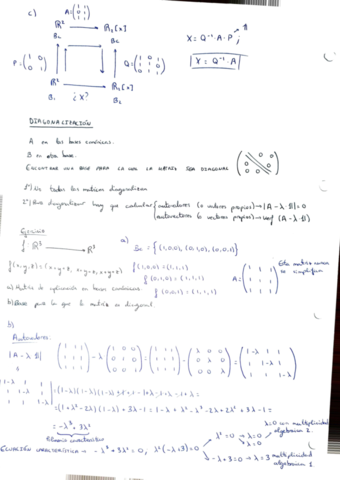 c)
A = ( 1 1 1 1 1 1 )
ℝ² → ℝ₂[x]
B_c B_c
P = ( 1 0 0 1 )
Q =
X = Q⁻¹·A·P ;
X = Q⁻¹·A
B₁ ¿X? B₂
ℝ² → ℝ₂[x]
DIAGONALIZACIÓN
A en las bases canónicas.
B en otra base.
ENCONTRAR UNA BASE PARA LA QUE LA MATRIZ SEA DIAGONAL
1º) No todas las matrices diagonalizan
2º) Para diagonalizar hay que calcular { autovalores (o valores propios) → |A - λ·𝟙| = 0
autovectores (o vectores propios) → (A - λ·𝟙)
EJERCICIO
f: ℝ³ → ℝ³
a) B_c = { (1,0,0), (0,1,0), (0,0,1) }
f(x,y,z) = (x+y+z, x+y+z, x+y+z)
f(1,0,0) = (1,1,1)
f(0,1,0) = (1,1,1)
f(0,0,1) = (1,1,1)
A = ( 1 1 1 1 1 1 1 1 1 )
Esta matriz nunca se simplifica
a) Matriz de aplicación en bases canónicas
b) Base para la que la matriz es diagonal
b)
Autovalores.
|A - λ·𝟙| = ( 1 1 1 1 1 1 1 1 1 ) - λ ( 1 0 0 0 1 0 0 0 1 ) = ( 1 1 1 1 1 1 1 1 1 ) - ( λ 0 0 0 λ 0 0 0 λ ) = ( 1-λ 1 1 1 1-λ 1 1 1 1-λ )
= (1-λ)(1-λ)(1-λ)+1+1-1+λ-1+λ-1+λ =
= (1+λ²-2λ)(1-λ)+3λ-1 = 1-λ+λ²-λ³-2λ+2λ²+3λ-1 =
= -λ³+3λ²
Polinomio característico
ECUACIÓN CARACTERÍSTICA → -λ³+3λ² = 0, λ²(-λ+3) = 0
λ² = 0 → λ = 0
λ = 0
λ = 0 con multiplicidad algebraica 2.
-λ+3 = 0 → λ = 3 multiplicidad algebraica 1.